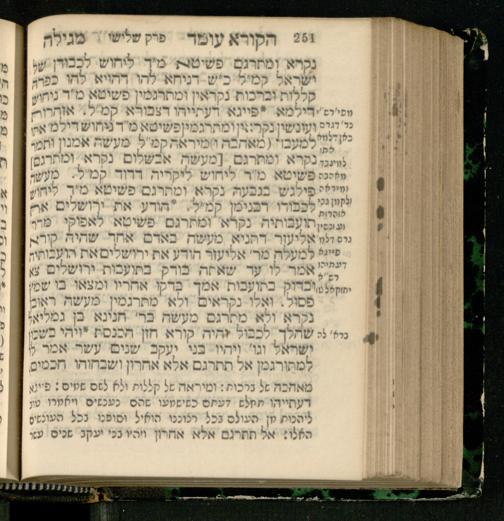 251 הקורא עומד פרק שלישי מגילה
נקרא ומתרגם פשיטא מ״ד ליחוש לכבודן של
ישראל קמ״ל כ״ש דניחא להו דהויא להו כפרה
קללות וברכות נקראין ומתרגמין פשיטא מ״ד ניחוש
דילמא *פייגא דעתייהו דצבורא קמ״ל. אזהרות
ועונשין נקריאין ומתרגמין פשיטא מ״ד ניחוש דילמא אתו
למעבד (מאהבה ו)מיראה קמ״ל מעשה אמנון ותמר
נקרא ומתרגם [מעשה אבשלום נקרא ומתרגם]
פשיטא מ״ד ליחוש ליקריה דדוד קמ״ל. מעשה
פילגש בגבעה נקרא ומתרגם פשיטא מ״ד ליחוש
לכבודו דבנימן קמ״ל. *הודע את ירושלים את
תועבותיה נקרא ומתרגם פשיטא לאפוקי מדר׳
אליעזר דתניא מעשה באדם אחד שהיה קורא
למעלה מר׳ אליעזר הודע את ירושלים את תועבותיה
אמר לו עד שאתה בודק בתועבות ירושלים צא
ובדוק בתועבות אמך בדקו אחריו ומצאו בו שמץ
פסול. ואלו נקראים ולא מתרגמין מעשה ראובן
נקרא ולא מתרגם מעשה בר׳ חנינא בן גמליאל
שהלך לכבול והיה קורא חזן הכנסת *ויהי בשכון
ישראל וגו׳ ויהיו בני יעקב שנים עשר אמר לו
למתורגמן אל תתרגם אלא אחרון ושבחוהו חכמים.
מאהבה של ברכות: ומיראה של קללות ולא לשם שמים: פייגא
דעתייהו תחלש דעתם כשישמעו שהם נענשים ויאמרו טוב
ליהנות מן העולם בכל רצוננו הואיל וסופנו בכל העונשים
האלו: אל תתרגם אלא אחרון ויהיו בני יעקב שנים עשר